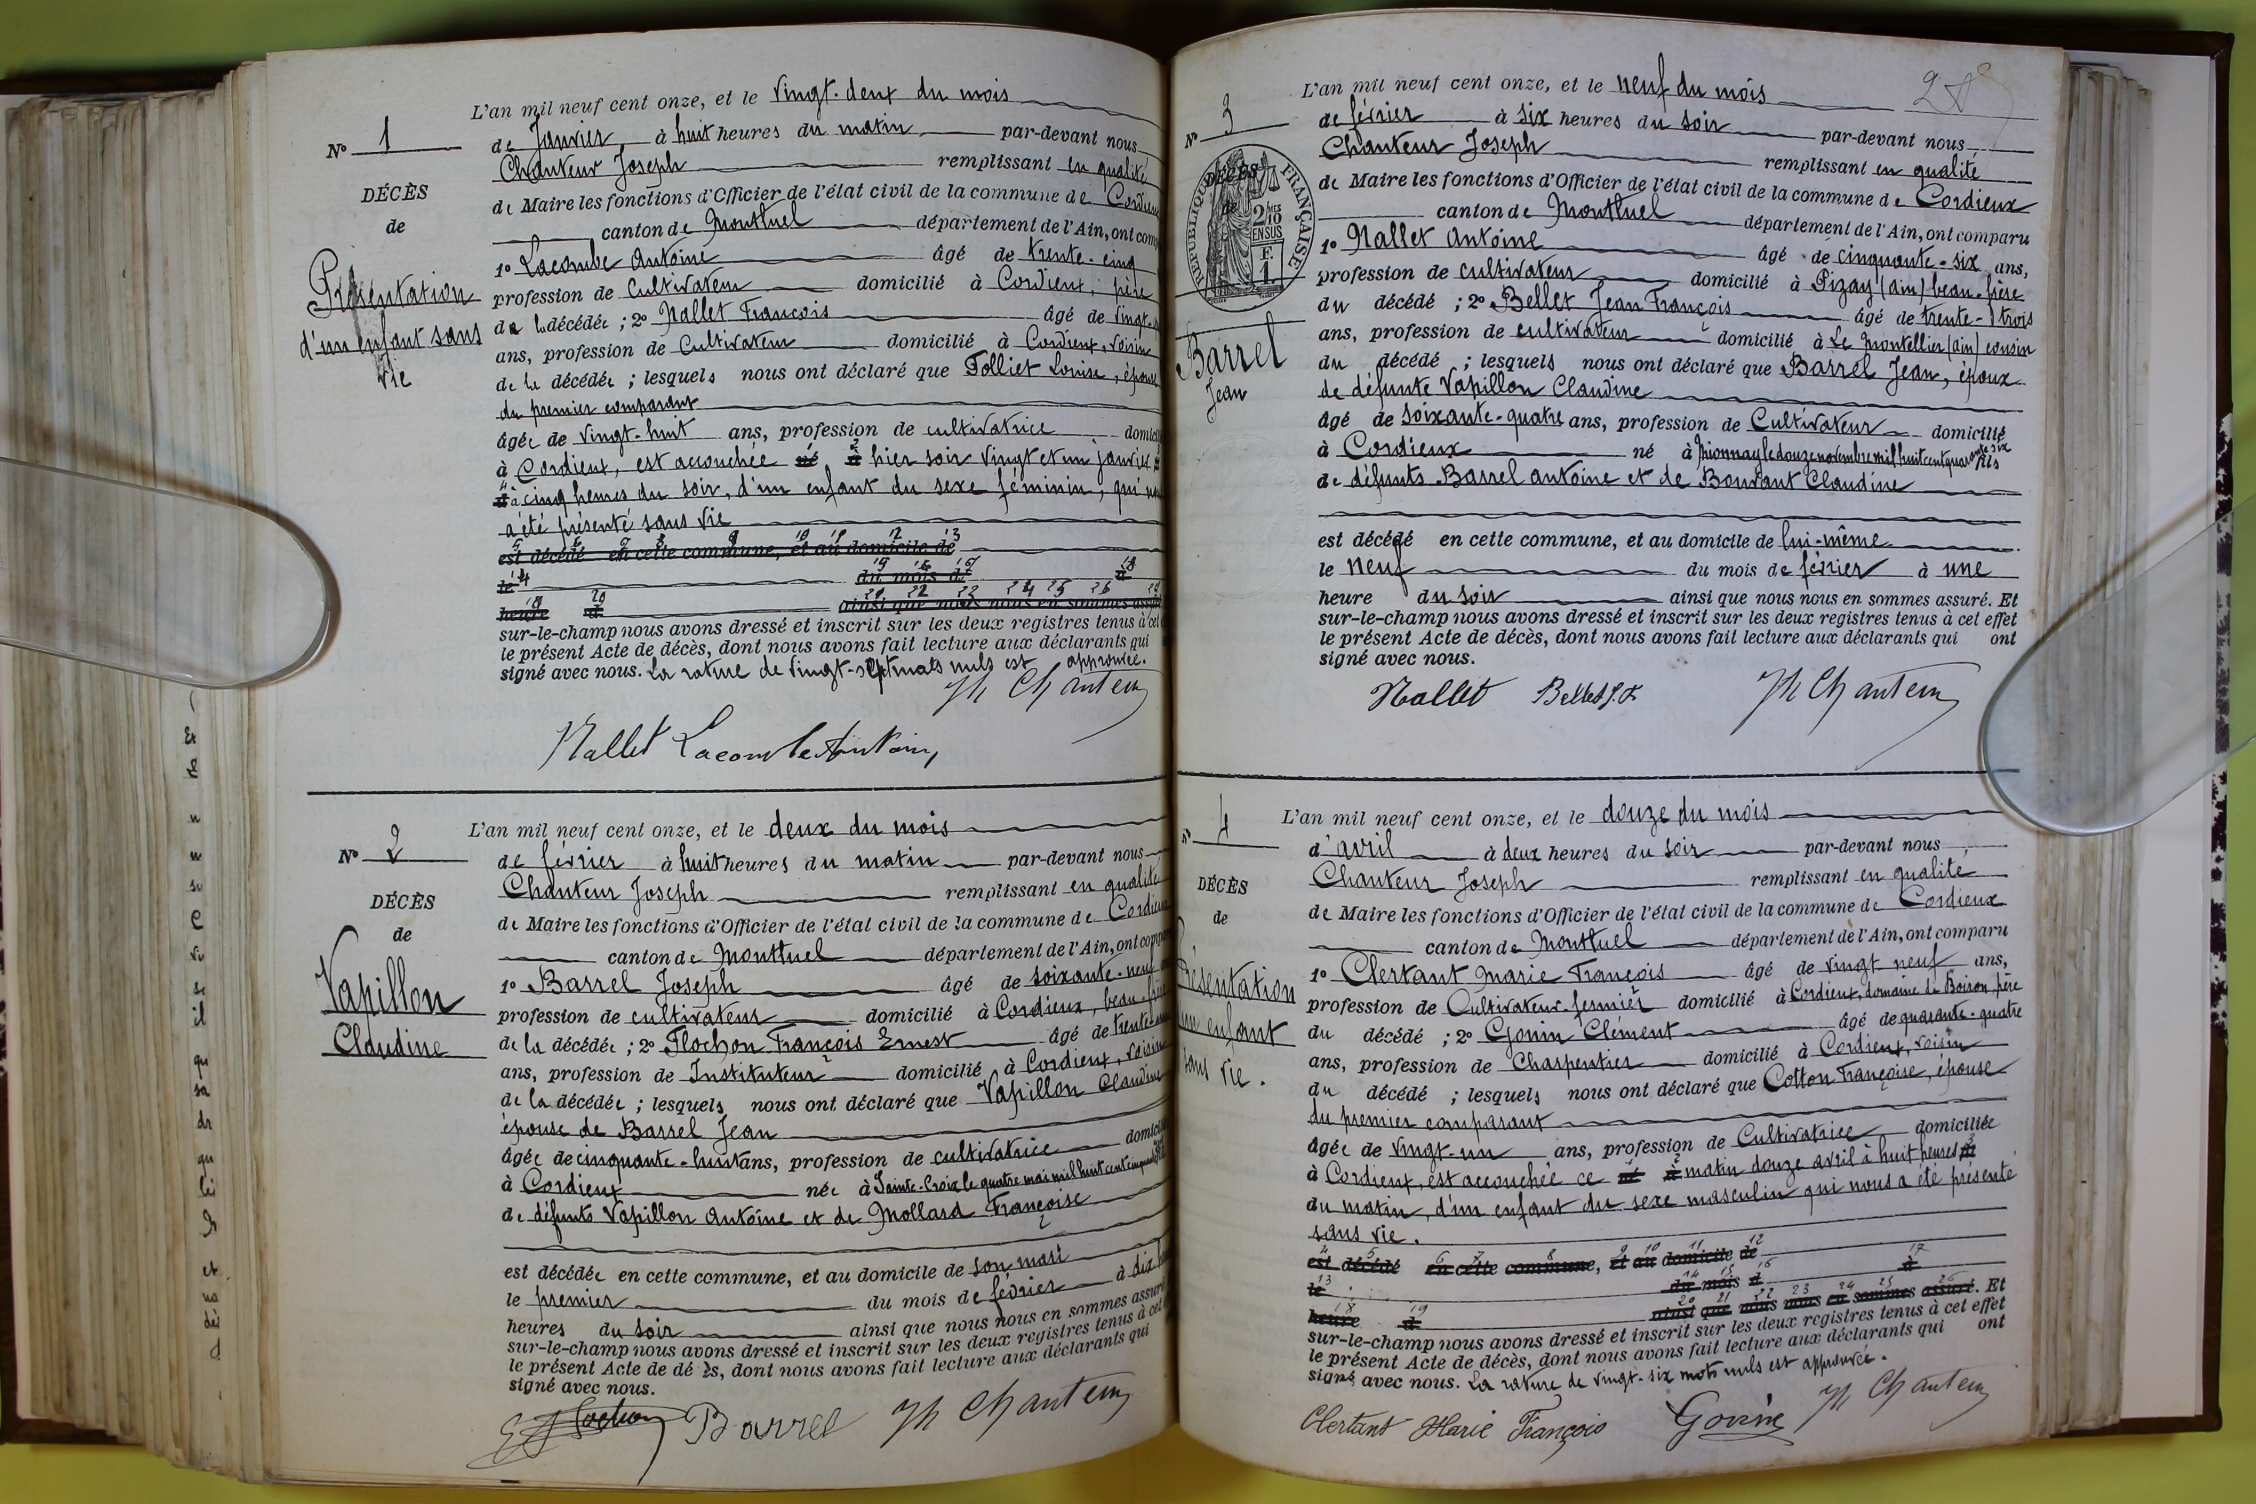 L'an mil neuf cent onze, et le vingt-deux du mois
N° 1
de Janvier à huit heures du matin par-devant nous
Chanteur Joseph remplissant en qualité
DÉCÈS
de Maire les fonctions d'Officier de l'état civil de la commune de
de
canton de Montluel département de l'Ain, ont
Présentation
d'un enfant sans
vie
1° Lacombe Antoine âgé de trente-cinq
profession de Cultivateur domicilié à Cordieux, père
de la décédée ; 2° Nallet François âgé de
ans, profession de Cultivateur domicilié à Cordieux, voisin
de la décédée ; lesquels nous ont déclaré que Folliet Louise, épouse
du premier comparant
âgée de vingt-huit ans, profession de cultivatrice
à Cordieux, est accouchée né à hier soir vingt et un janvier
à cinq heures du soir, d'un enfant du sexe féminin, qui
a été présenté sans vie
est décédé en cette commune, et au domicile de
le du mois de à
heure d ainsi que nous nous en sommes
sur-le-champ nous avons dressé et inscrit sur les deux registres tenus à cet
le présent Acte de décès, dont nous avons fait lecture aux déclarants qui
signé avec nous. La rature de vingt-sept mots nuls est approuvée.
Jh Chanteur
Nallet Lacombe Antoine
L'an mil neuf cent onze, et le deux du mois
N° 2
de février à huit heures du matin par-devant nous
Chanteur Joseph remplissant en qualité
DÉCÈS
de Maire les fonctions d'Officier de l'état civil de la commune de Cordieux
de
canton de Montluel département de l'Ain, ont
Vapillon
Claudine
1° Barrel Joseph âgé de soixante-neuf
profession de cultivateur domicilié à Cordieux, beau-frère
de la décédée ; 2° Flochon François Ernest âgé de
ans, profession de Instituteur domicilié à Cordieux, voisin
de la décédée ; lesquels nous ont déclaré que Vapillon Claudine
épouse de Barrel Jean
âgée de cinquante-huit ans, profession de cultivatrice
à Cordieux née à Sainte-Croix le quatre mai mil huit cent
de défunts Vapillon Antoine et de Mollard Françoise
est décédée en cette commune, et au domicile de son mari
le premier du mois de février à dix
heures du soir ainsi que nous nous en sommes assuré
sur-le-champ nous avons dressé et inscrit sur les deux registres tenus à cet
le présent Acte de dé ès, dont nous avons fait lecture aux déclarants qui
signé avec nous.
E Flochon Barrel Jh Chanteur
L'an mil neuf cent onze, et le neuf du mois
N° 3
de février à six heures du soir par-devant nous
Chanteur Joseph remplissant en qualité
DÉCÈS
RÉPUBLIQUE FRANÇAISE
2 MES
10
EN SUS
F.
1
de Maire les fonctions d'Officier de l'état civil de la commune de Cordieux
canton de Montluel département de l'Ain, ont comparu
1° Nallet Antoine âgé de cinquante-six ans,
profession de cultivateur domicilié à Pizay (Ain) beau-frère
du décédé ; 2° Bellet Jean François âgé de trente-trois
Barrel
Jean
ans, profession de cultivateur domicilié à Le Montellier (Ain) cousin
du décédé ; lesquels nous ont déclaré que Barrel Jean, époux
de défunte Vapillon Claudine
âgé de soixante-quatre ans, profession de Cultivateur domicilié
à Cordieux né à Mionnay le douze novembre mil huit cent quarante six fils
de défunts Barrel Antoine et de Bouvant Claudine
est décédé en cette commune, et au domicile de lui-même
le neuf du mois de février à une
heure du soir ainsi que nous nous en sommes assuré. Et
sur-le-champ nous avons dressé et inscrit sur les deux registres tenus à cet effet
le présent Acte de décès, dont nous avons fait lecture aux déclarants qui ont
signé avec nous.
Nallet Bellet J. F. Jh Chanteur
L'an mil neuf cent onze, et le douze du mois
N° 4
d'avril à deux heures du soir par-devant nous
Chanteur Joseph remplissant en qualité
DÉCÈS
de Maire les fonctions d'Officier de l'état civil de la commune de Cordieux
de
canton de Montluel département de l'Ain, ont comparu
Présentation
d'un enfant
sans vie.
1° Clertant Marie François âgé de vingt neuf ans,
profession de Cultivateur-fermier domicilié à Cordieux, domaine de Boiron, père
du décédé ; 2° Gonin Clément âgé de quarante-quatre
ans, profession de Charpentier domicilié à Cordieux, voisin
du décédé ; lesquels nous ont déclaré que Cotton Françoise, épouse
du premier comparant
âgée de vingt-un ans, profession de Cultivatrice domiciliée
à Cordieux, est accouchée ce né à matin douze avril à huit heures
du matin, d'un enfant du sexe masculin qui nous a été présenté
sans vie.
est décédé en cette commune, et au domicile de
le du mois d à
heure d ainsi que nous nous en sommes assuré. Et
sur-le-champ nous avons dressé et inscrit sur les deux registres tenus à cet effet
le présent Acte de décès, dont nous avons fait lecture aux déclarants qui ont
signé avec nous. La rature de vingt-six mots nuls est approuvée.
Clertant Marie François Gonin Jh Chanteur